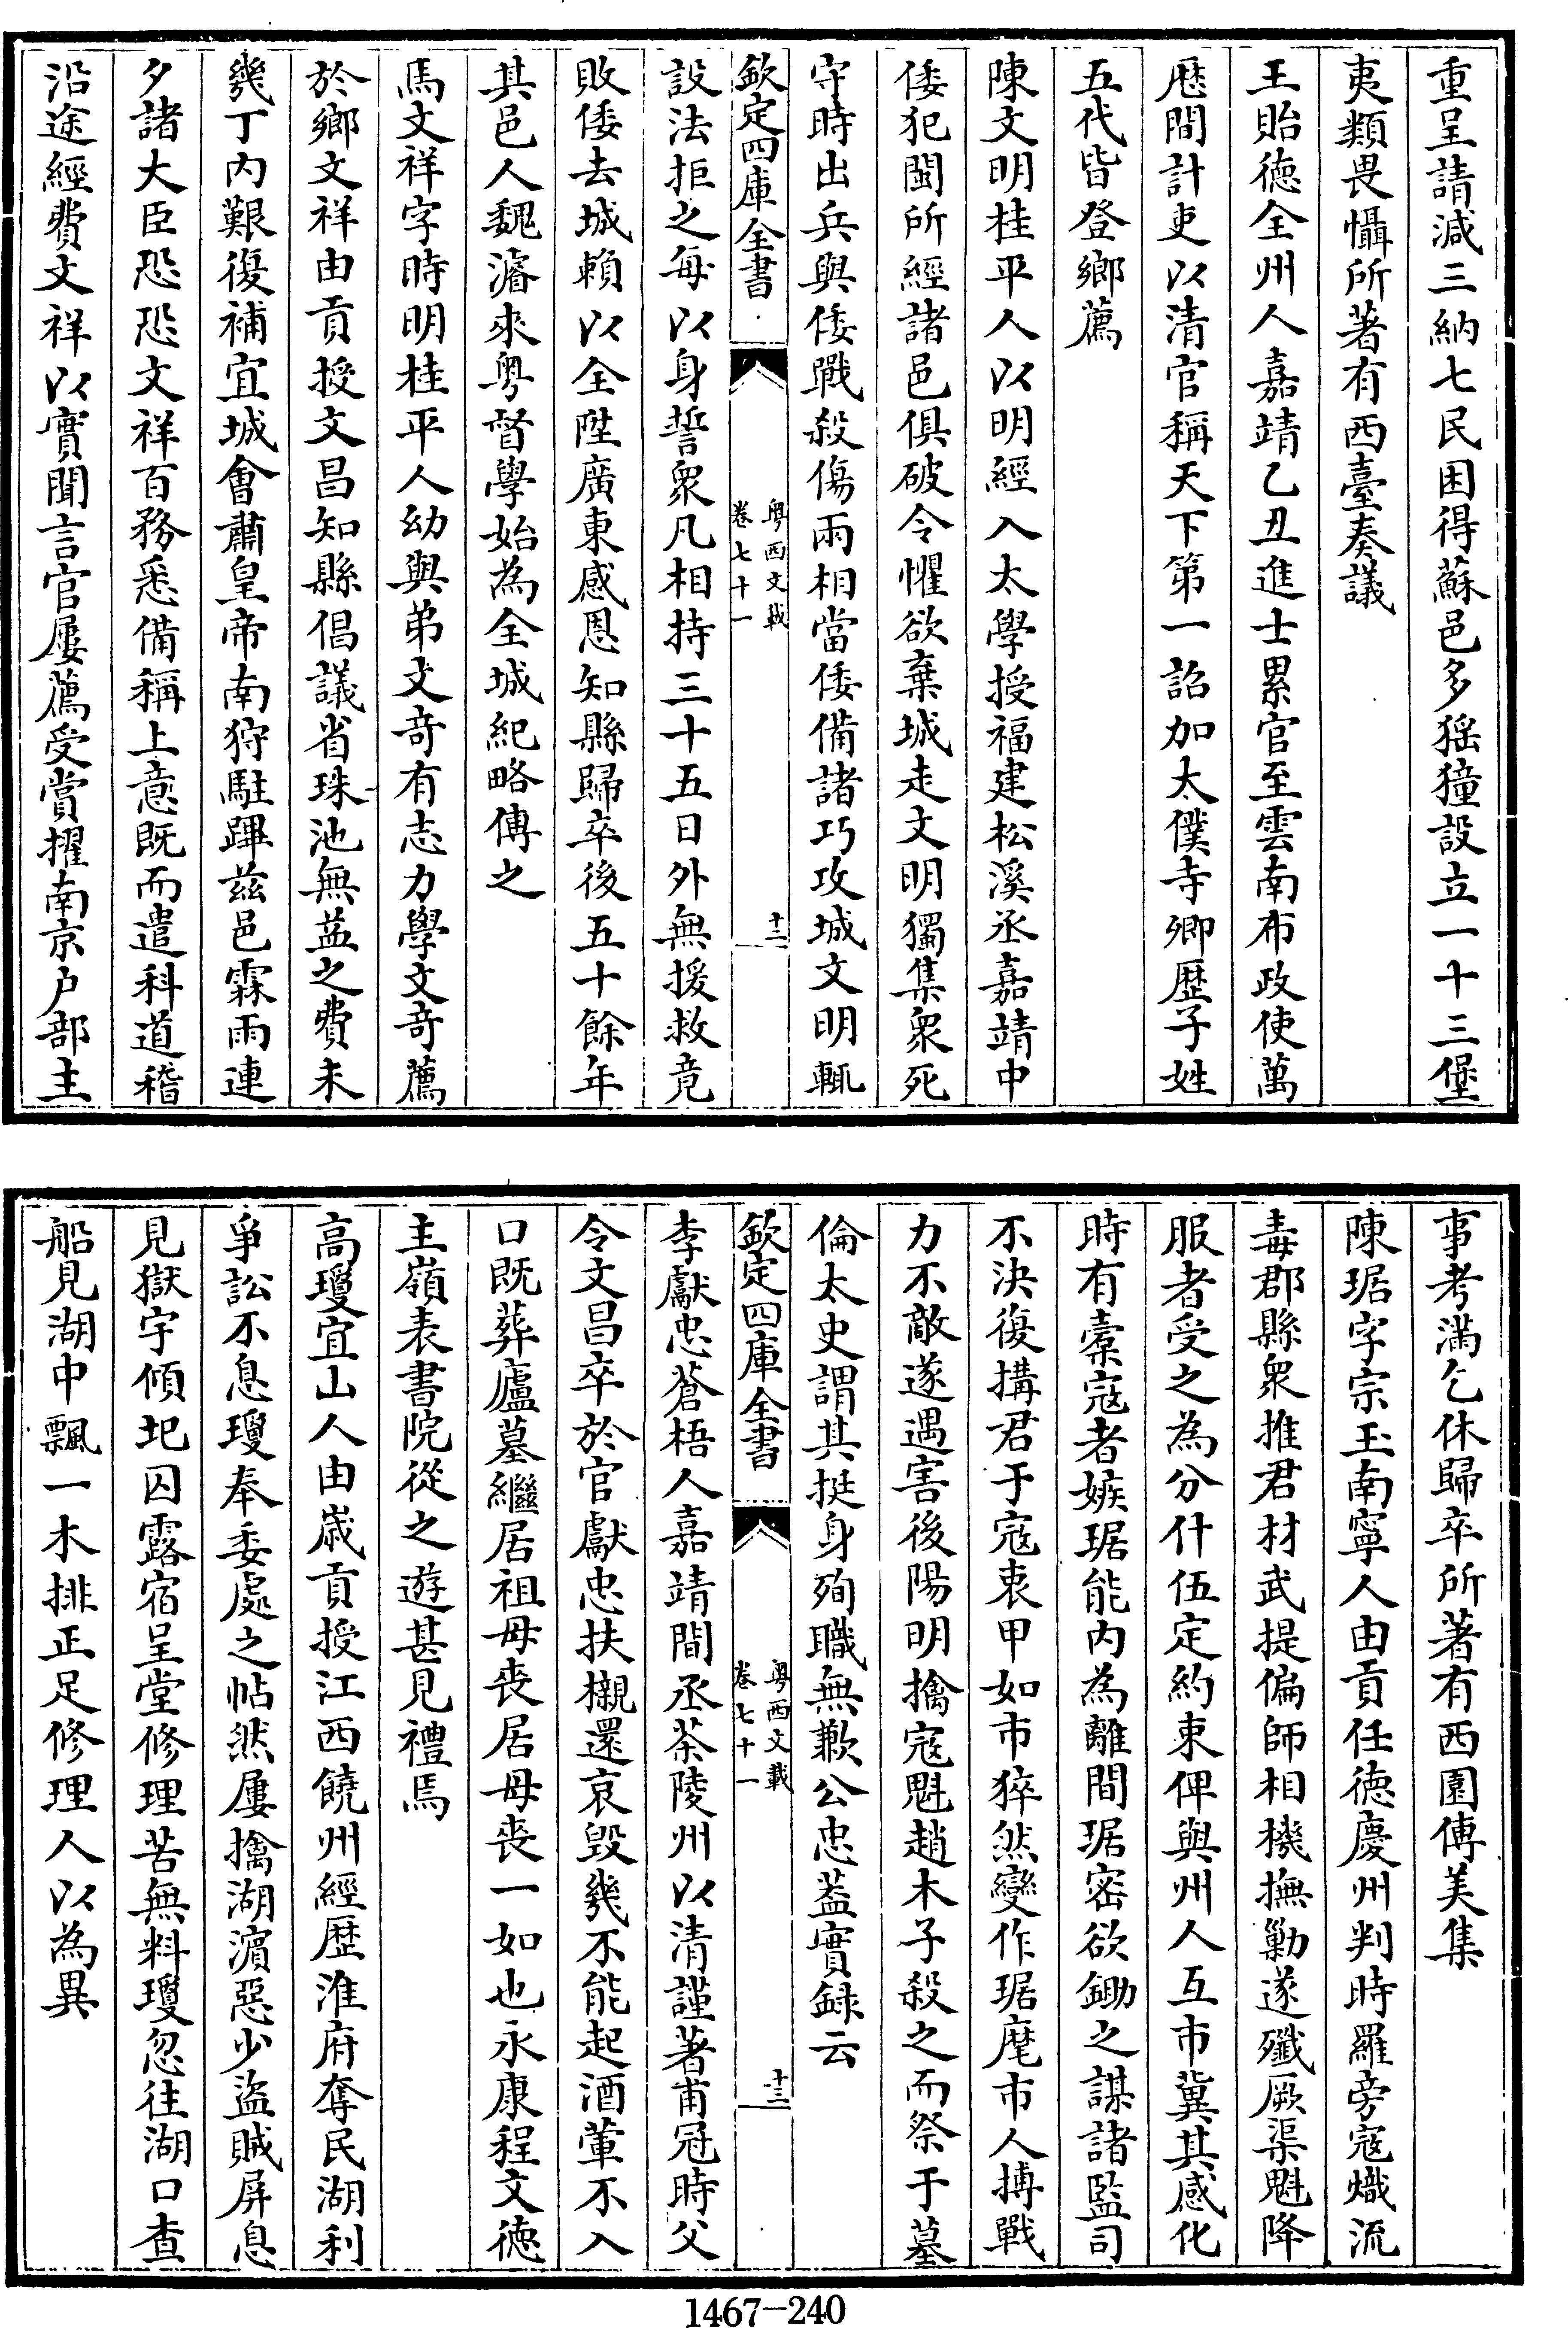 重呈請減三納七民困得蘇邑多猺獞設立一十三堡
夷類畏懾所著有西臺奏議
王貽徳全州人嘉靖乙丑進士累官至雲南布政使萬
厯間計吏以清官稱天下第一詔加太僕寺卿歴子姓
五代皆登鄉薦
陳文明桂平人以明經入太學授福建松溪丞嘉靖中
倭犯閩所經諸邑俱破令懼欲棄城走文明獨集衆死
守時出兵與倭戰殺傷兩相當倭備諸巧攻城文明輒
欽定四庫全書
粤西文載
卷七十一
十二
設法拒之毎以身誓衆凡相持三十五日外無援救竟
敗倭去城賴以全陞廣東感恩知縣歸卒後五十餘年
其邑人魏濬來粤督學始為全城紀略傳之
馬文祥字時明桂平人幼與弟文竒有志力學文竒薦
於鄉文祥由貢授文昌知縣倡議省珠池無益之費未
幾丁内艱復補宜城會肅皇帝南狩駐蹕兹邑霖雨連
夕諸大臣恐恐文祥百務悉備稱上意既而遣科道稽
沿途經費文祥以實聞言官屢薦受賞擢南京户部主
事考滿乞休歸卒所著有西園傅美集
陳琚字宗玉南寧人由貢任徳慶州判時羅旁寇熾流
毒郡縣衆推君材武提偏師相機撫勦遂殲厥渠魁降
服者受之為分什伍定約束俾與州人互市冀其感化
時有槖寇者嫉琚能内為離間琚密欲鋤之謀諸監司
不決復搆君于寇衷甲如市猝然變作琚麾市人搏戰
力不敵遂遇害後陽明擒寇魁趙木子殺之而祭于墓
倫太史謂其挺身殉職無歉公忠葢實録云
欽定四庫全書
粤西文載
卷七十一
十三
李獻忠蒼梧人嘉靖間丞茶陵州以清謹著甫冠時父
令文昌卒於官獻忠扶櫬還哀毁幾不能起酒葷不入
口既葬廬墓繼居祖母喪居母喪一如也永康程文徳
主嶺表書院從之遊甚見禮焉
高瓊宜山人由嵗貢授江西饒州經歴淮府奪民湖利
爭訟不息瓊奉委處之帖然屢擒湖濵惡少盜賊屏息
見獄宇傾圮囚露宿呈堂修理苦無料瓊忽往湖口查
船見湖中飄一木排正足修理人以為異
1467-240